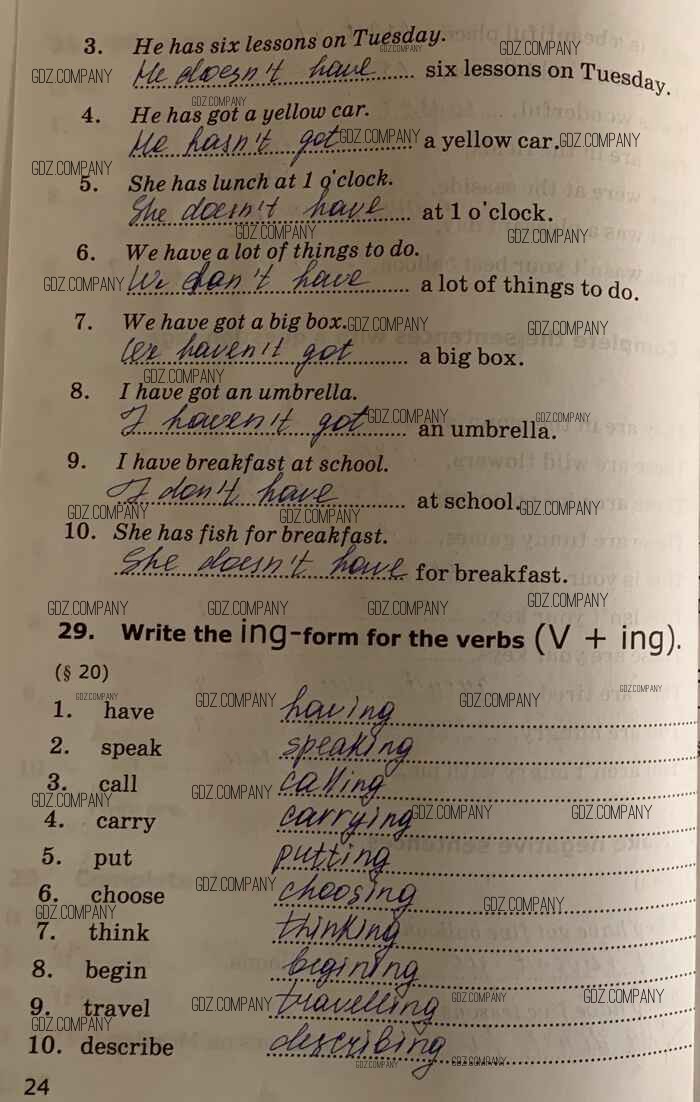 3. He has six lessons on Tuesday.
He doesn't have six lessons on Tuesday.
4. He has got a yellow car.
He hasn't got a yellow car.
5. She has lunch at 1 o'clock.
She doesn't have at 1 o'clock.
6. We have a lot of things to do.
We don't have a lot of things to do.
7. We have got a big box.
We haven't got a big box.
8. I have got an umbrella.
I haven't got an umbrella.
9. I have breakfast at school.
I don't have at school.
10. She has fish for breakfast.
She doesn't have for breakfast.
29. Write the ing-form for the verbs (V + ing).
(§ 20)
1. have having
2. speak speaking
3. call calling
4. carry carrying
5. put putting
6. choose choosing
7. think thinking
8. begin begining
9. travel travelling
10. describe describing
24
GDZ.COMPANY